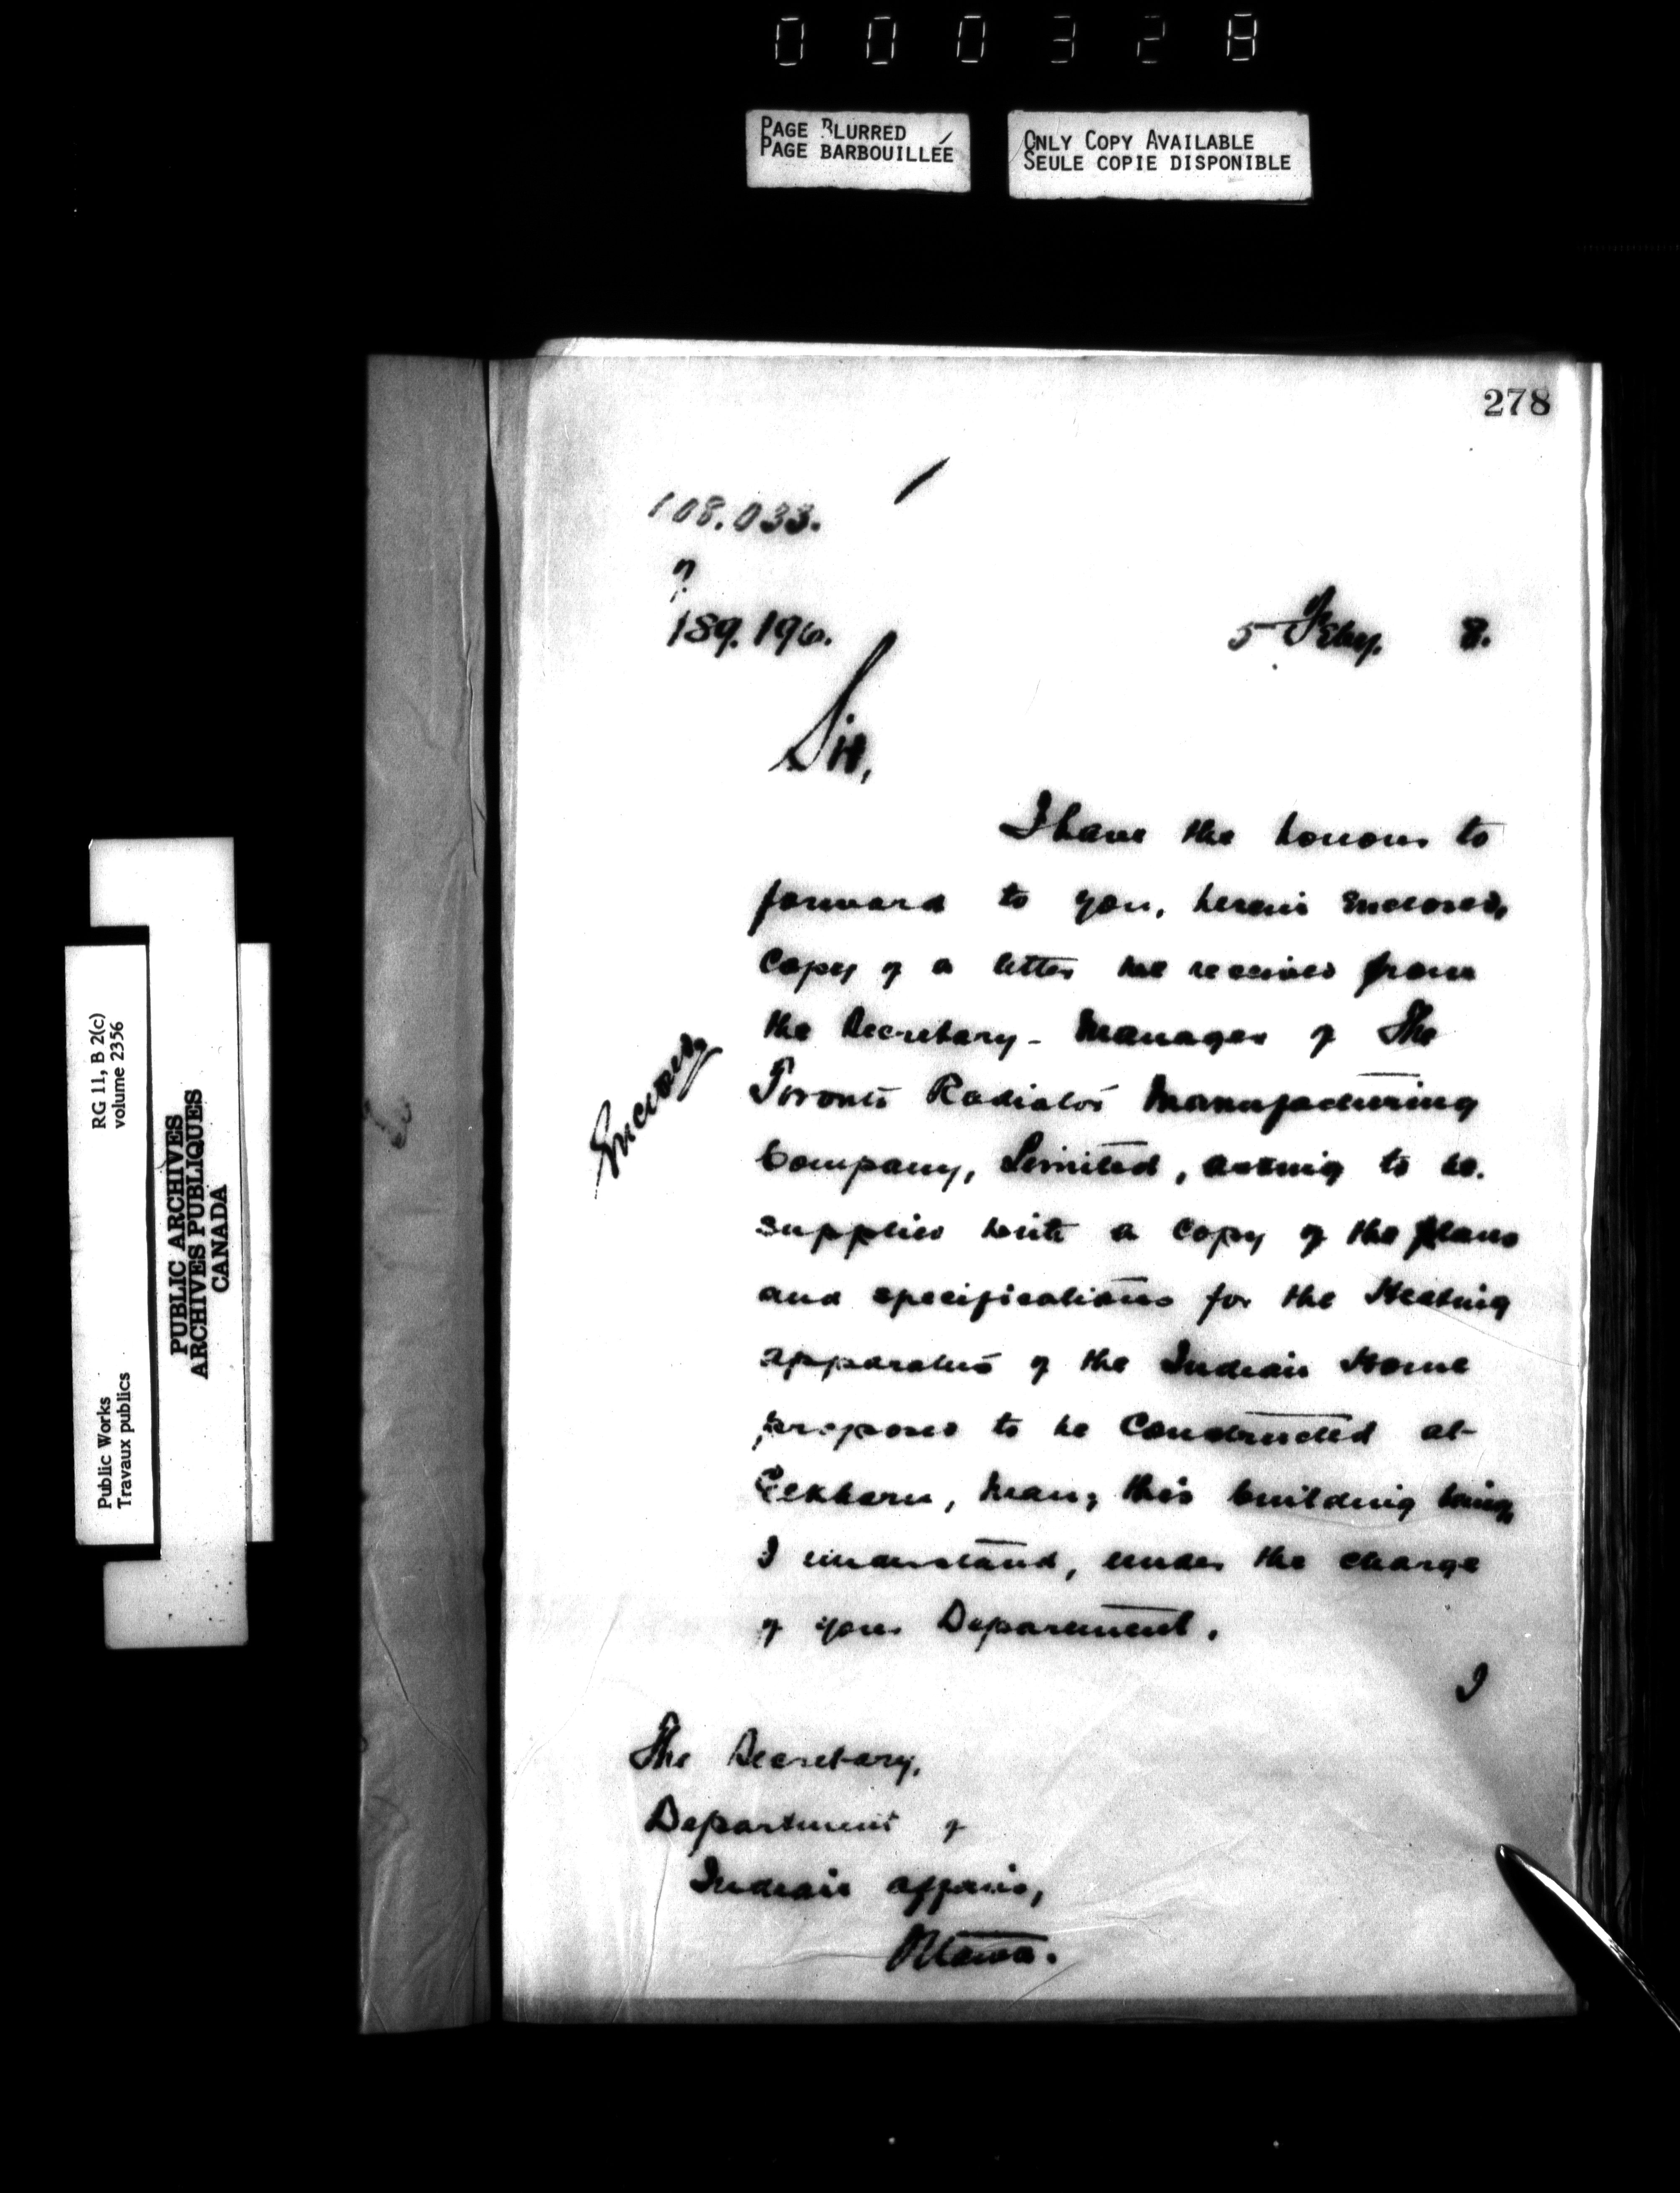 000328
PAGE BLURRED
PAGE BARBOUILLÉE
ONLY COPY AVAILABLE
SEULE COPIE DISPONIBLE
278
108.033.
189.196.
5 Feby. 8.
Sir,
I have the honour to
forward to you, herein enclosed,
copy of a letter we received from
the Secretary-Manager of The
Toronto Radiator Manufacturing
Company, Limited, asking to be
supplied with a copy of the plans
and specifications for the Heating
apparatus of the Indian Home
proposed to be constructed at
Elkhorn, Man, this building being,
I understand, under the charge
of your Department.
I
The Secretary,
Department of
Indian Affairs,
Ottawa.
RG 11, B 2(c)
volume 2356
Public Works
Travaux publics
PUBLIC ARCHIVES
ARCHIVES PUBLIQUES
CANADA